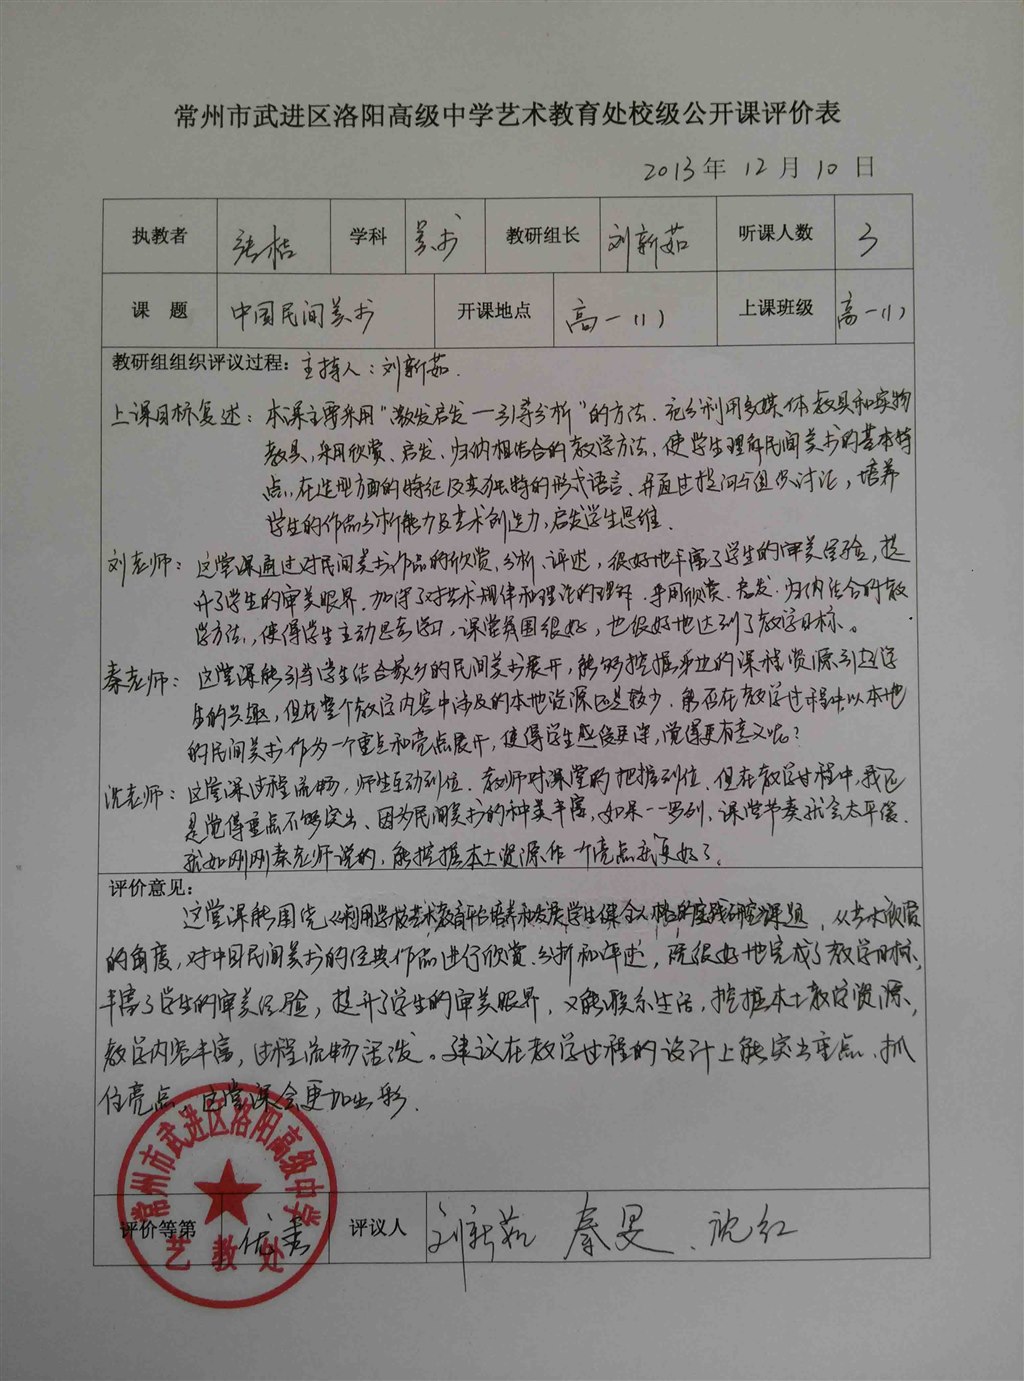 常州市武进区洛阳高级中学艺术教育处校级公开课评价表
2013年 12月 10日
执教者 张桔 学科 美术 教研组长 刘新茹 听课人数 3
课 题 中国民间美术 开课地点 高一(1) 上课班级 高一(1)
教研组组织评议过程：主持人：刘新茹.
上课目标复述：本课主要采用“激发启发—引导分析”的方法、充分利用多媒体教具和实物
教具,采用欣赏、启发、归纳相结合的教学方法,使学生理解民间美术的基本特
点,在造型方面的特征及其独特的形式语言、并通过提问与组织讨论，培养
学生的作品分析能力及艺术创造力,启发学生思维.
刘老师：这堂课通过对民间美术作品的欣赏、分析、评述，很好地丰富了学生的审美经验,提
升了学生的审美眼界,加深了对艺术规律和理论的理解.采用欣赏、启发、归纳结合的教
学方法,使得学生主动思考学习,课堂氛围很好，也很好地达到了教学目标。
秦老师：这堂课能引导学生结合家乡的民间美术展开,能够挖掘身边的课程资源引起学
生的兴趣,但在整个教学内容中涉及的本地资源还是较少、能否在教学过程中以本地
的民间美术作为一个重点和亮点展开,使得学生感受更深,觉得更有意义呢?
沈老师：这堂课过程流畅,师生互动到位.教师对课堂的把握到位.但在教学过程中,我还
是觉得重点不够突出、因为民间美术的种类丰富,如果一一罗列,课堂节奏就会太平缓.
就如刚刚秦老师说的,能挖掘本土资源作一个亮点就更好了。
评价意见：
这堂课能围绕《利用学校艺术教育平台培养和发展学生健全人格的实践研究》课题，从艺术欣赏
的角度,对中国民间美术的经典作品进行欣赏.分析和评述，既很好地完成了教学目标,
丰富了学生的审美经验，提升了学生的审美眼界，又能联系生活,挖掘本土教学资源,
教学内容丰富,过程流畅活泼。建议在教学过程的设计上能突出重点、抓
住亮点,这堂课会更加出彩.
常州市武进区洛阳高级中学
艺教处
评价等第 优秀 评议人 刘新茹 秦旻、沈红